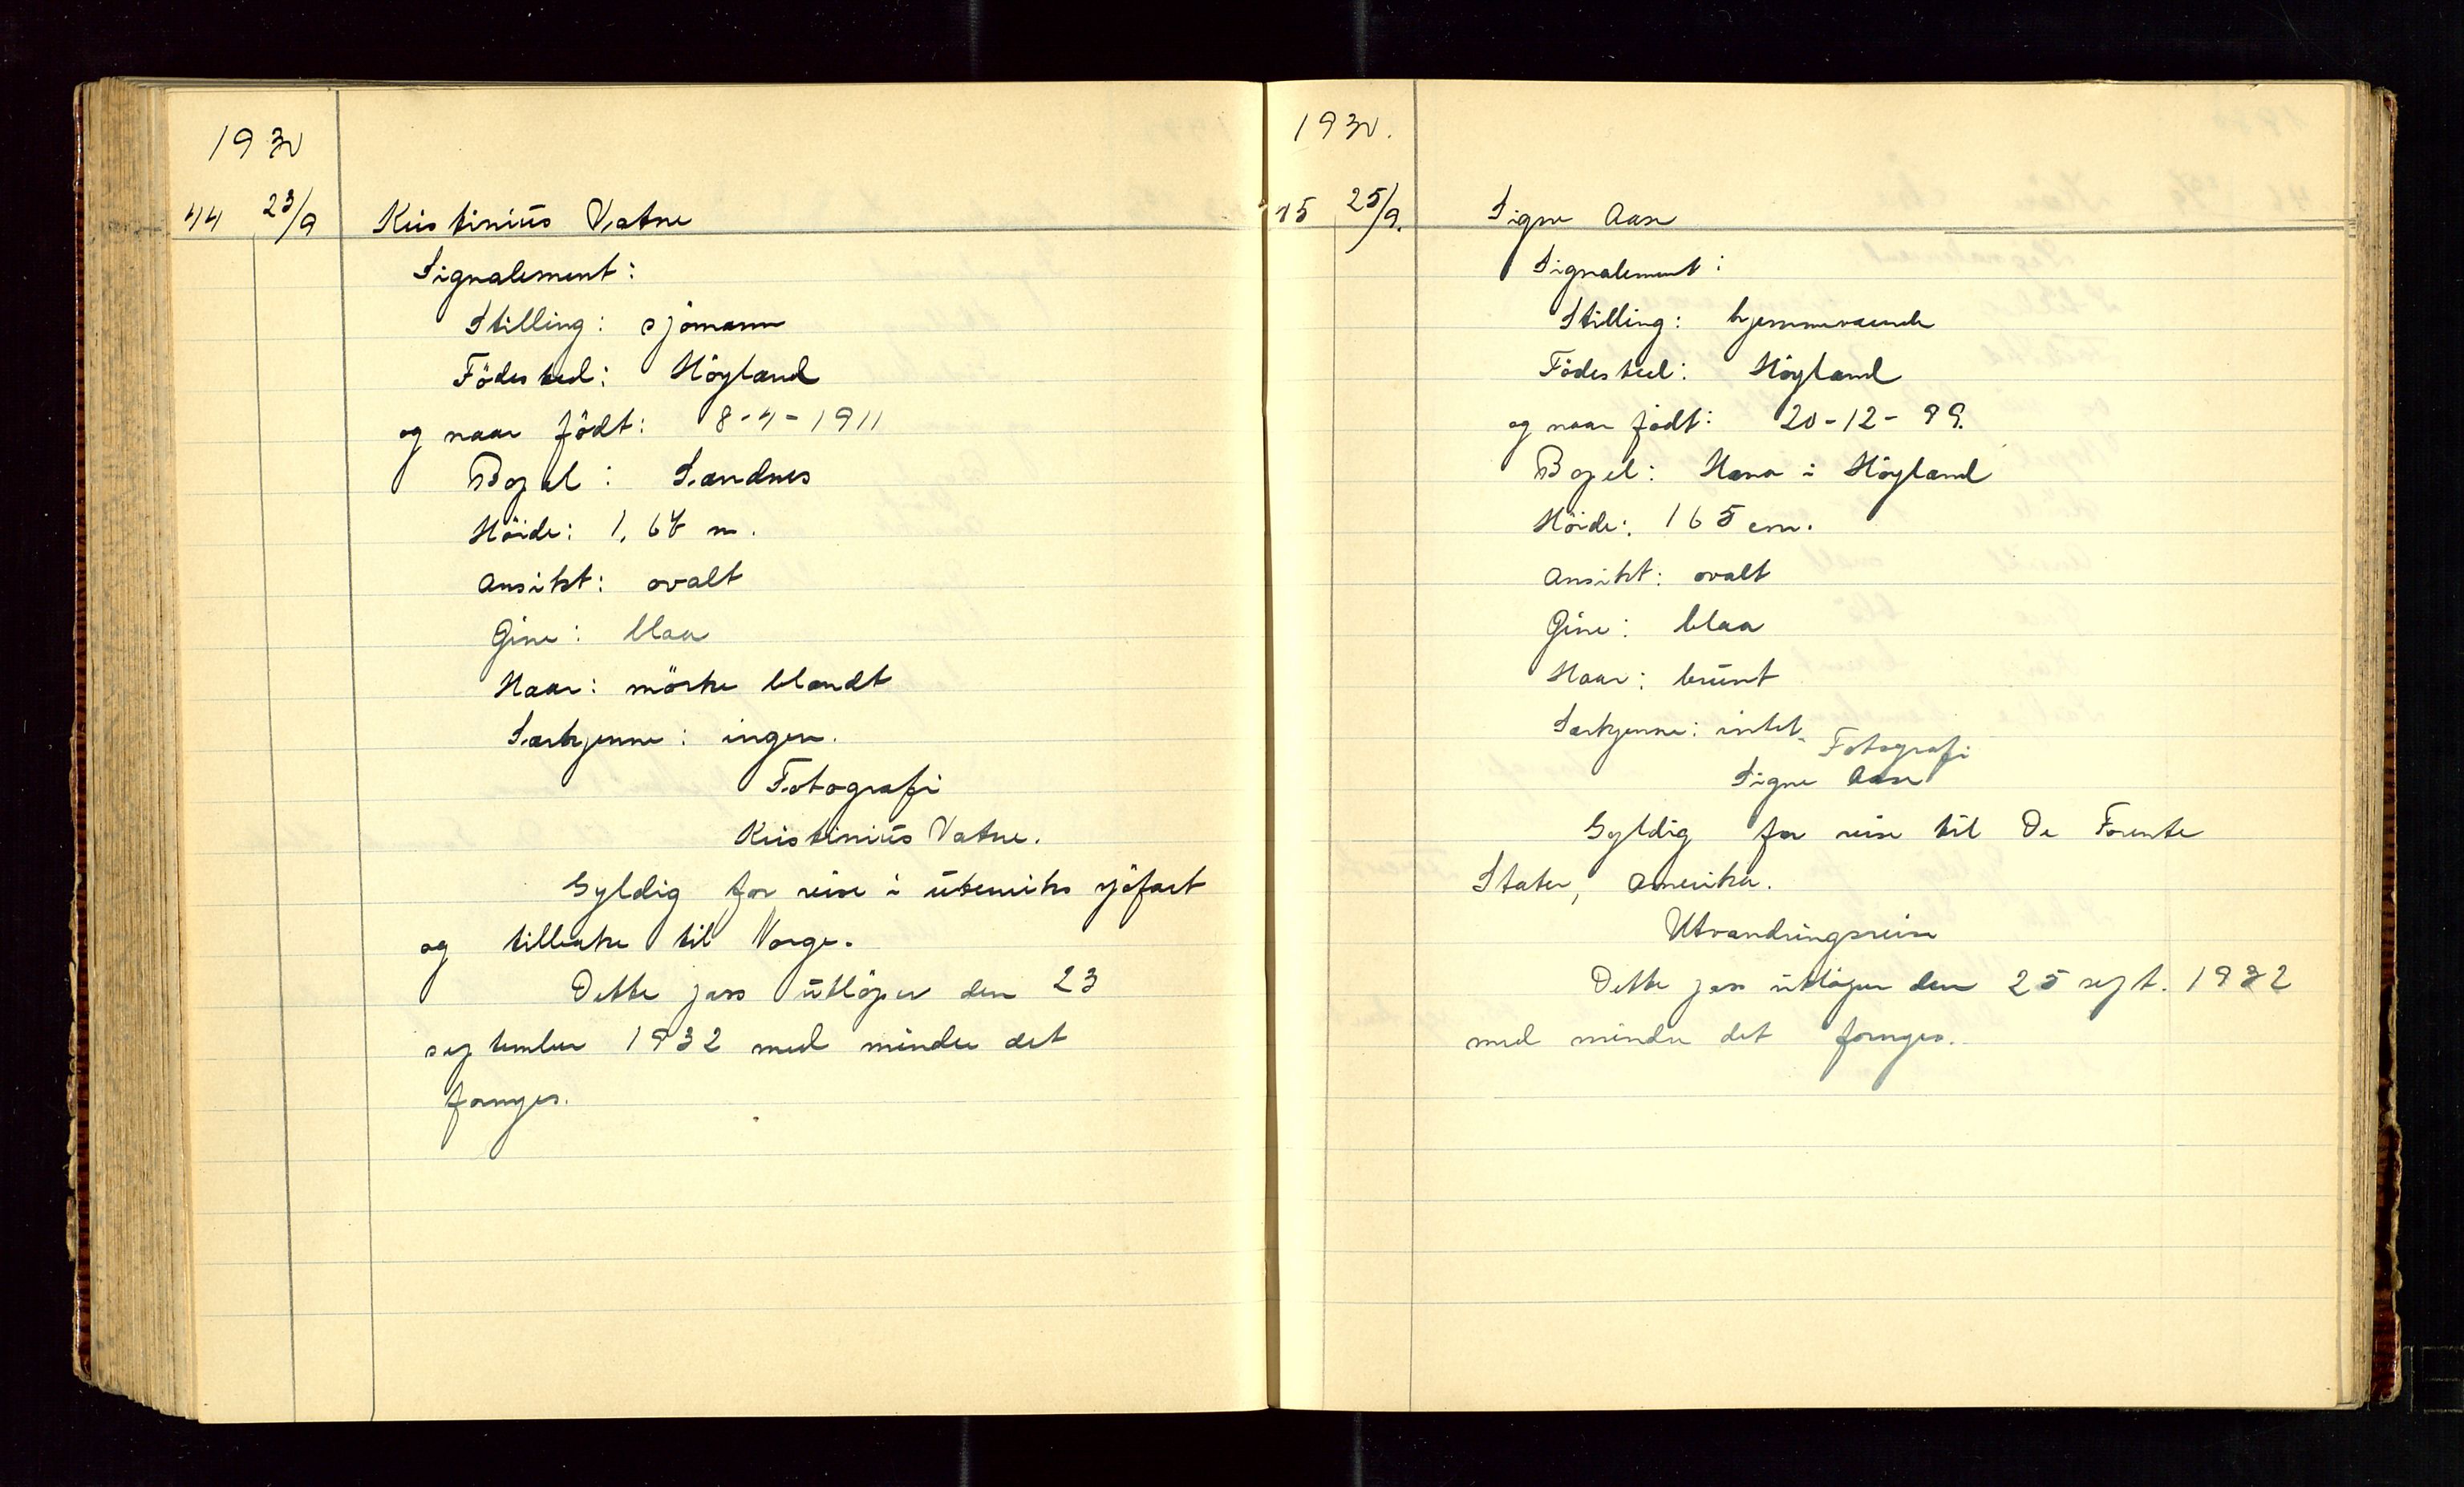 1930
44 23/9 Kristinius Vatne
Signalement:
Stilling: sjömann
Födested: Höyland
og naar födt: 8-4-1911
Bopel: Sandnes
Höide: 1,68 m.
Ansikt: ovalt
Öine: blaa
Haar: mörke blondt
Særkjenne: ingen.
Fotografi
Kristinius Vatne.
Gyldig for reise i utenriks sjöfart
og tilbake til Norge.
Dette pass utlöper den 23
september 1932 med mindre det
fornyes.
1930.
45 25/9. Signe Aase
Signalement:
Stilling: hjemmeværende
Födested: Höyland
og naar födt: 20-12-99.
Bopel: Hana i Höyland
Höide: 165 cm.
Ansikt: ovalt
Öine: blaa
Haar: brunt
Særkjenne: intet
Fotografi
Signe Aase
Gyldig for reise til De Forente
Stater, Amerika.
Utvandringsreise
Dette pass utlöper den 25 sept. 1932
med mindre det fornyes.